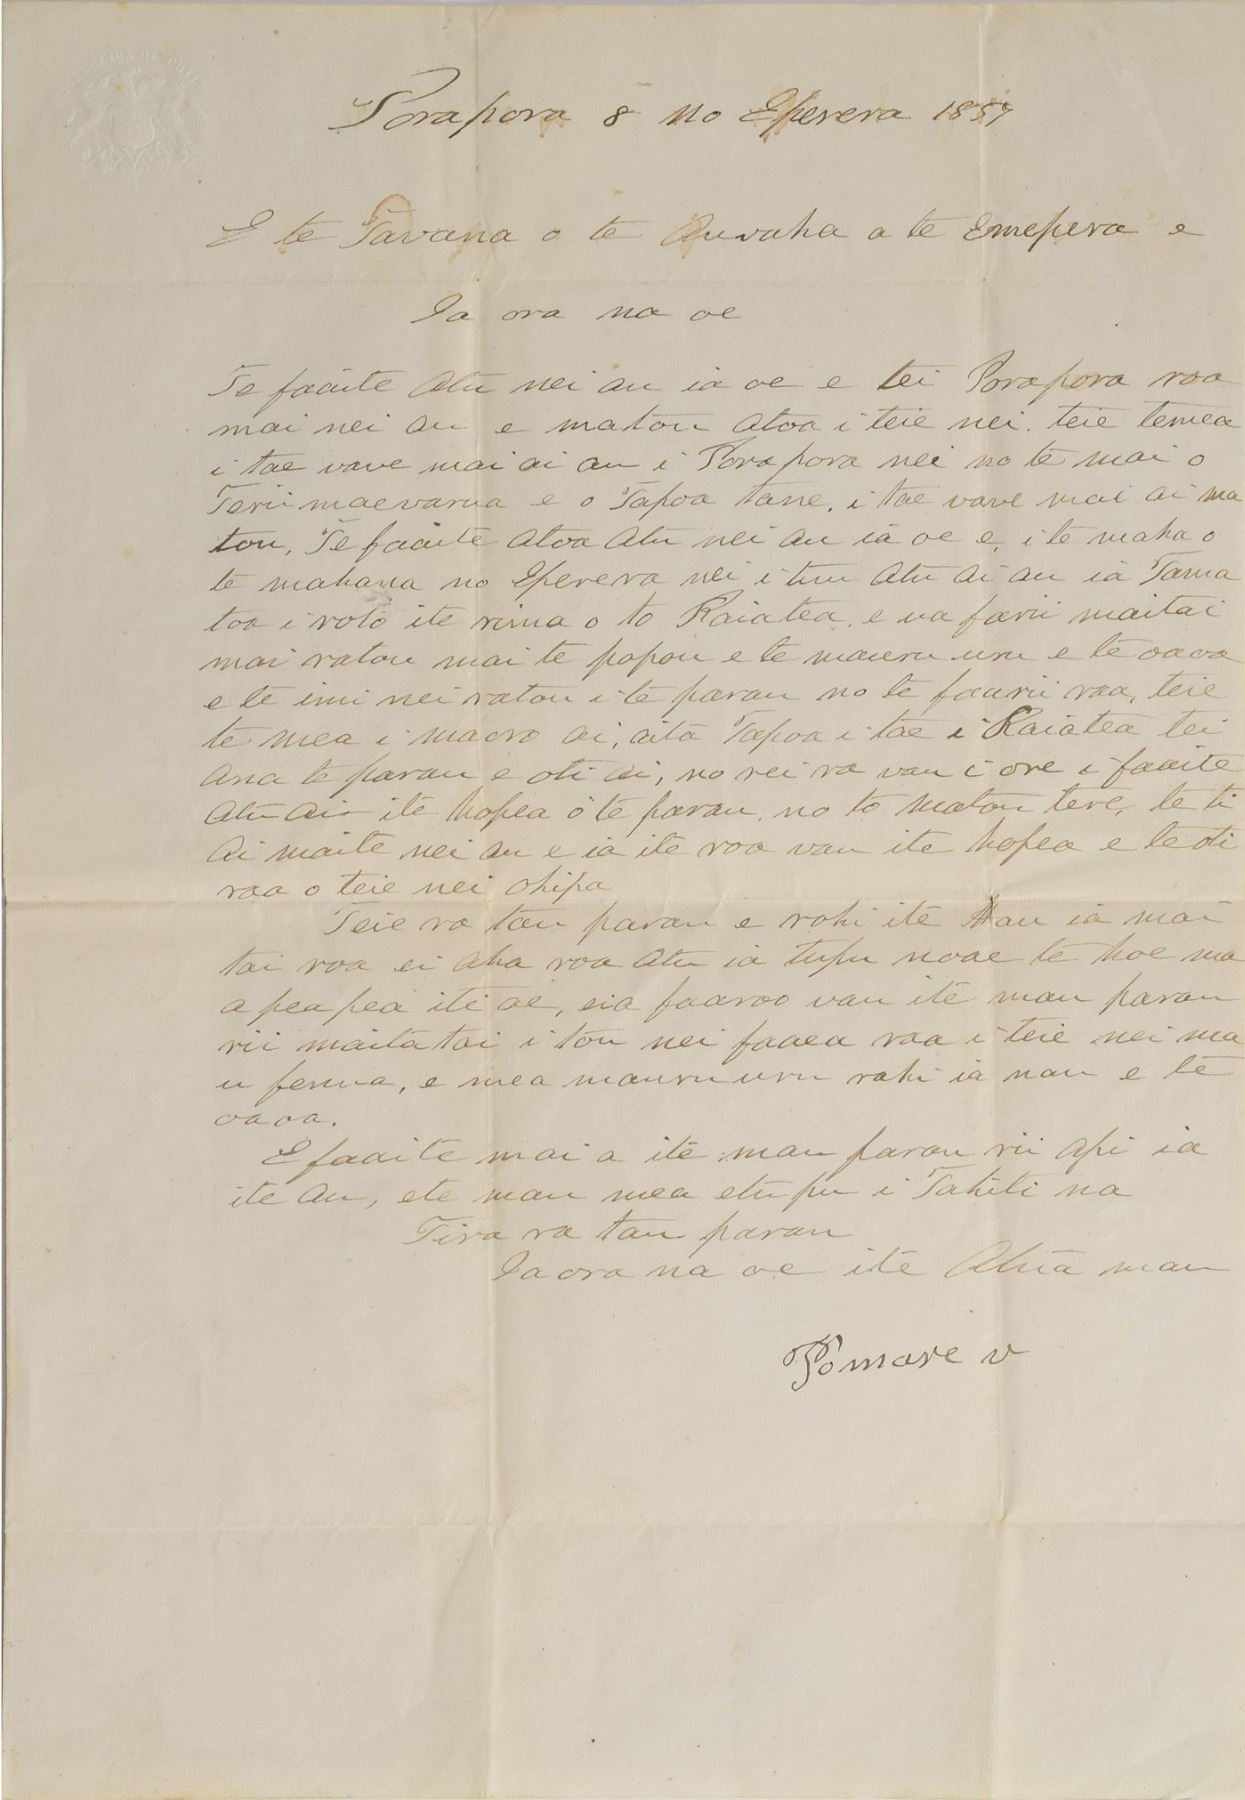 Porapora 8 no Eperera 1857
E te Tavana o te Auvaha a te Emepera e
Ia ora na oe
Te faaite atu nei au ia oe e tei Porapora roa
mai nei au e matou atoa i teie nei. teie temea
i tae vave mai ai au i Porapora nei no te mai o
Teriimaevarua e o Tapoa tane, i tae vave mai ai ma
tou, Te faaite atoa atu nei au ia oe e, i te maha o
te mahana no Eperera nei i tuu atu ai au ia Tama
toa i roto ite rima o to Raiatea, e ua farii maitai
mai ratou mai te popou e te mauru uru e te oaoa
e te imi nei ratou i te parau no te faarii raa, teie
te mea i maoro ai, aita Tapoa i tae i Raiatea tei
ana te parau e oti ai, no rei ra vau i ore i faaite
atu ai ite hopea o te parau, no to matou tere, te ti
ai maite nei au e ia ite roa vau ite hopea e te oti
raa o teie nei ohipa
Teie ra tau parau e rohi ite Hau ia mai
tai roa ei aha roa atu ia tupu noae te hoe ma
a peapea iti ae, eia faaroo vau ite mau parau
rii maitatai i tou nei faaea raa i teie nei ma
u fenua, e mea mauruuru rahi ia nau e te
oaoa.
E faaite mai a ite mau parau rii api ia
ite au, ete mau mea etupu i Tahiti na
Tira ra tau parau
Iaora na oe ite Atua mau
Pomare v